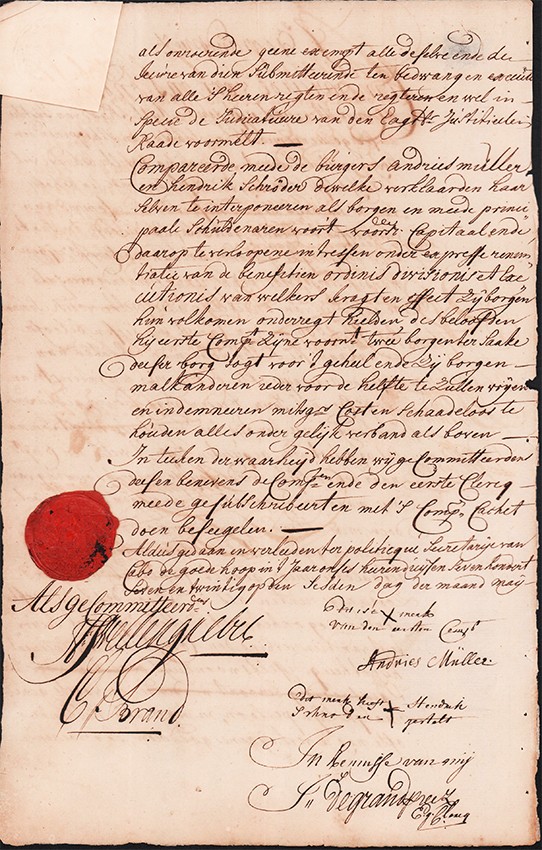 als onroerende geene exempt alle deselve ende de
keure van dien submitteerende ten bedwang en executie
van alle 's heeren regten ende regteren en wel in
specie de Judicature van den Eagtb: Justitieelen
Raade voormelt. —
Compareerde meede de burgers Andries Müller
en Hendrik Schröder dewelke verklaarden haar
selven te interponeeren als borgen en meede princi
paale Schuldenaren voor't voorsz: Capitaal ende
daarop te verloopene intressen onder expresse renun
tiatie van de benefitien ordinis divisionis et Exe
cutionis van welkers kragt en effect zij borgen
hun volkomen onderregt hielden, des beloofden
hij eerste Compt. zijne voorn:t twee borgen ter saake
deser borgtogt voor't geheel ende zij borgen
malkanderen ieder voor de helfte te zullen vrijen
en indemneeren mitsgrs Cost en schaadeloos te
houden alles onder gelijk verband als boven —
In teeken der waarheijd hebben wij gecommitteerdens
desen benevens de Comptn ende den eerste Clercq
meede gesubscribeert en met 's Comps. Cachet
doen besegelen. —
Aldus gedaan en verleeden ter politicque Secretarije van
Cabo de goede hoop in't Jaar onses heeren duijsen Seven hondert
Seven en twintig op den Sesden dag der maand maij
Als gecommitteerdens
dit is het merk
van den eersten Compt
Andries Müller.
C: Brand.
dit merk heeft Hendrik
Schroder gestelt
In kennisse van mij
Js: De grandpreez
Eg: Clercq